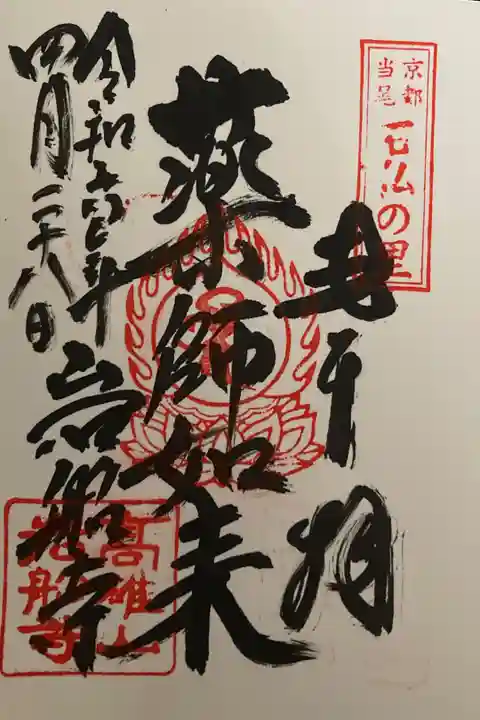 京都
当尾
石仏の里
奉拝
薬師如来
岩船寺
令和 年
四月二十八日
高雄山
岩船寺